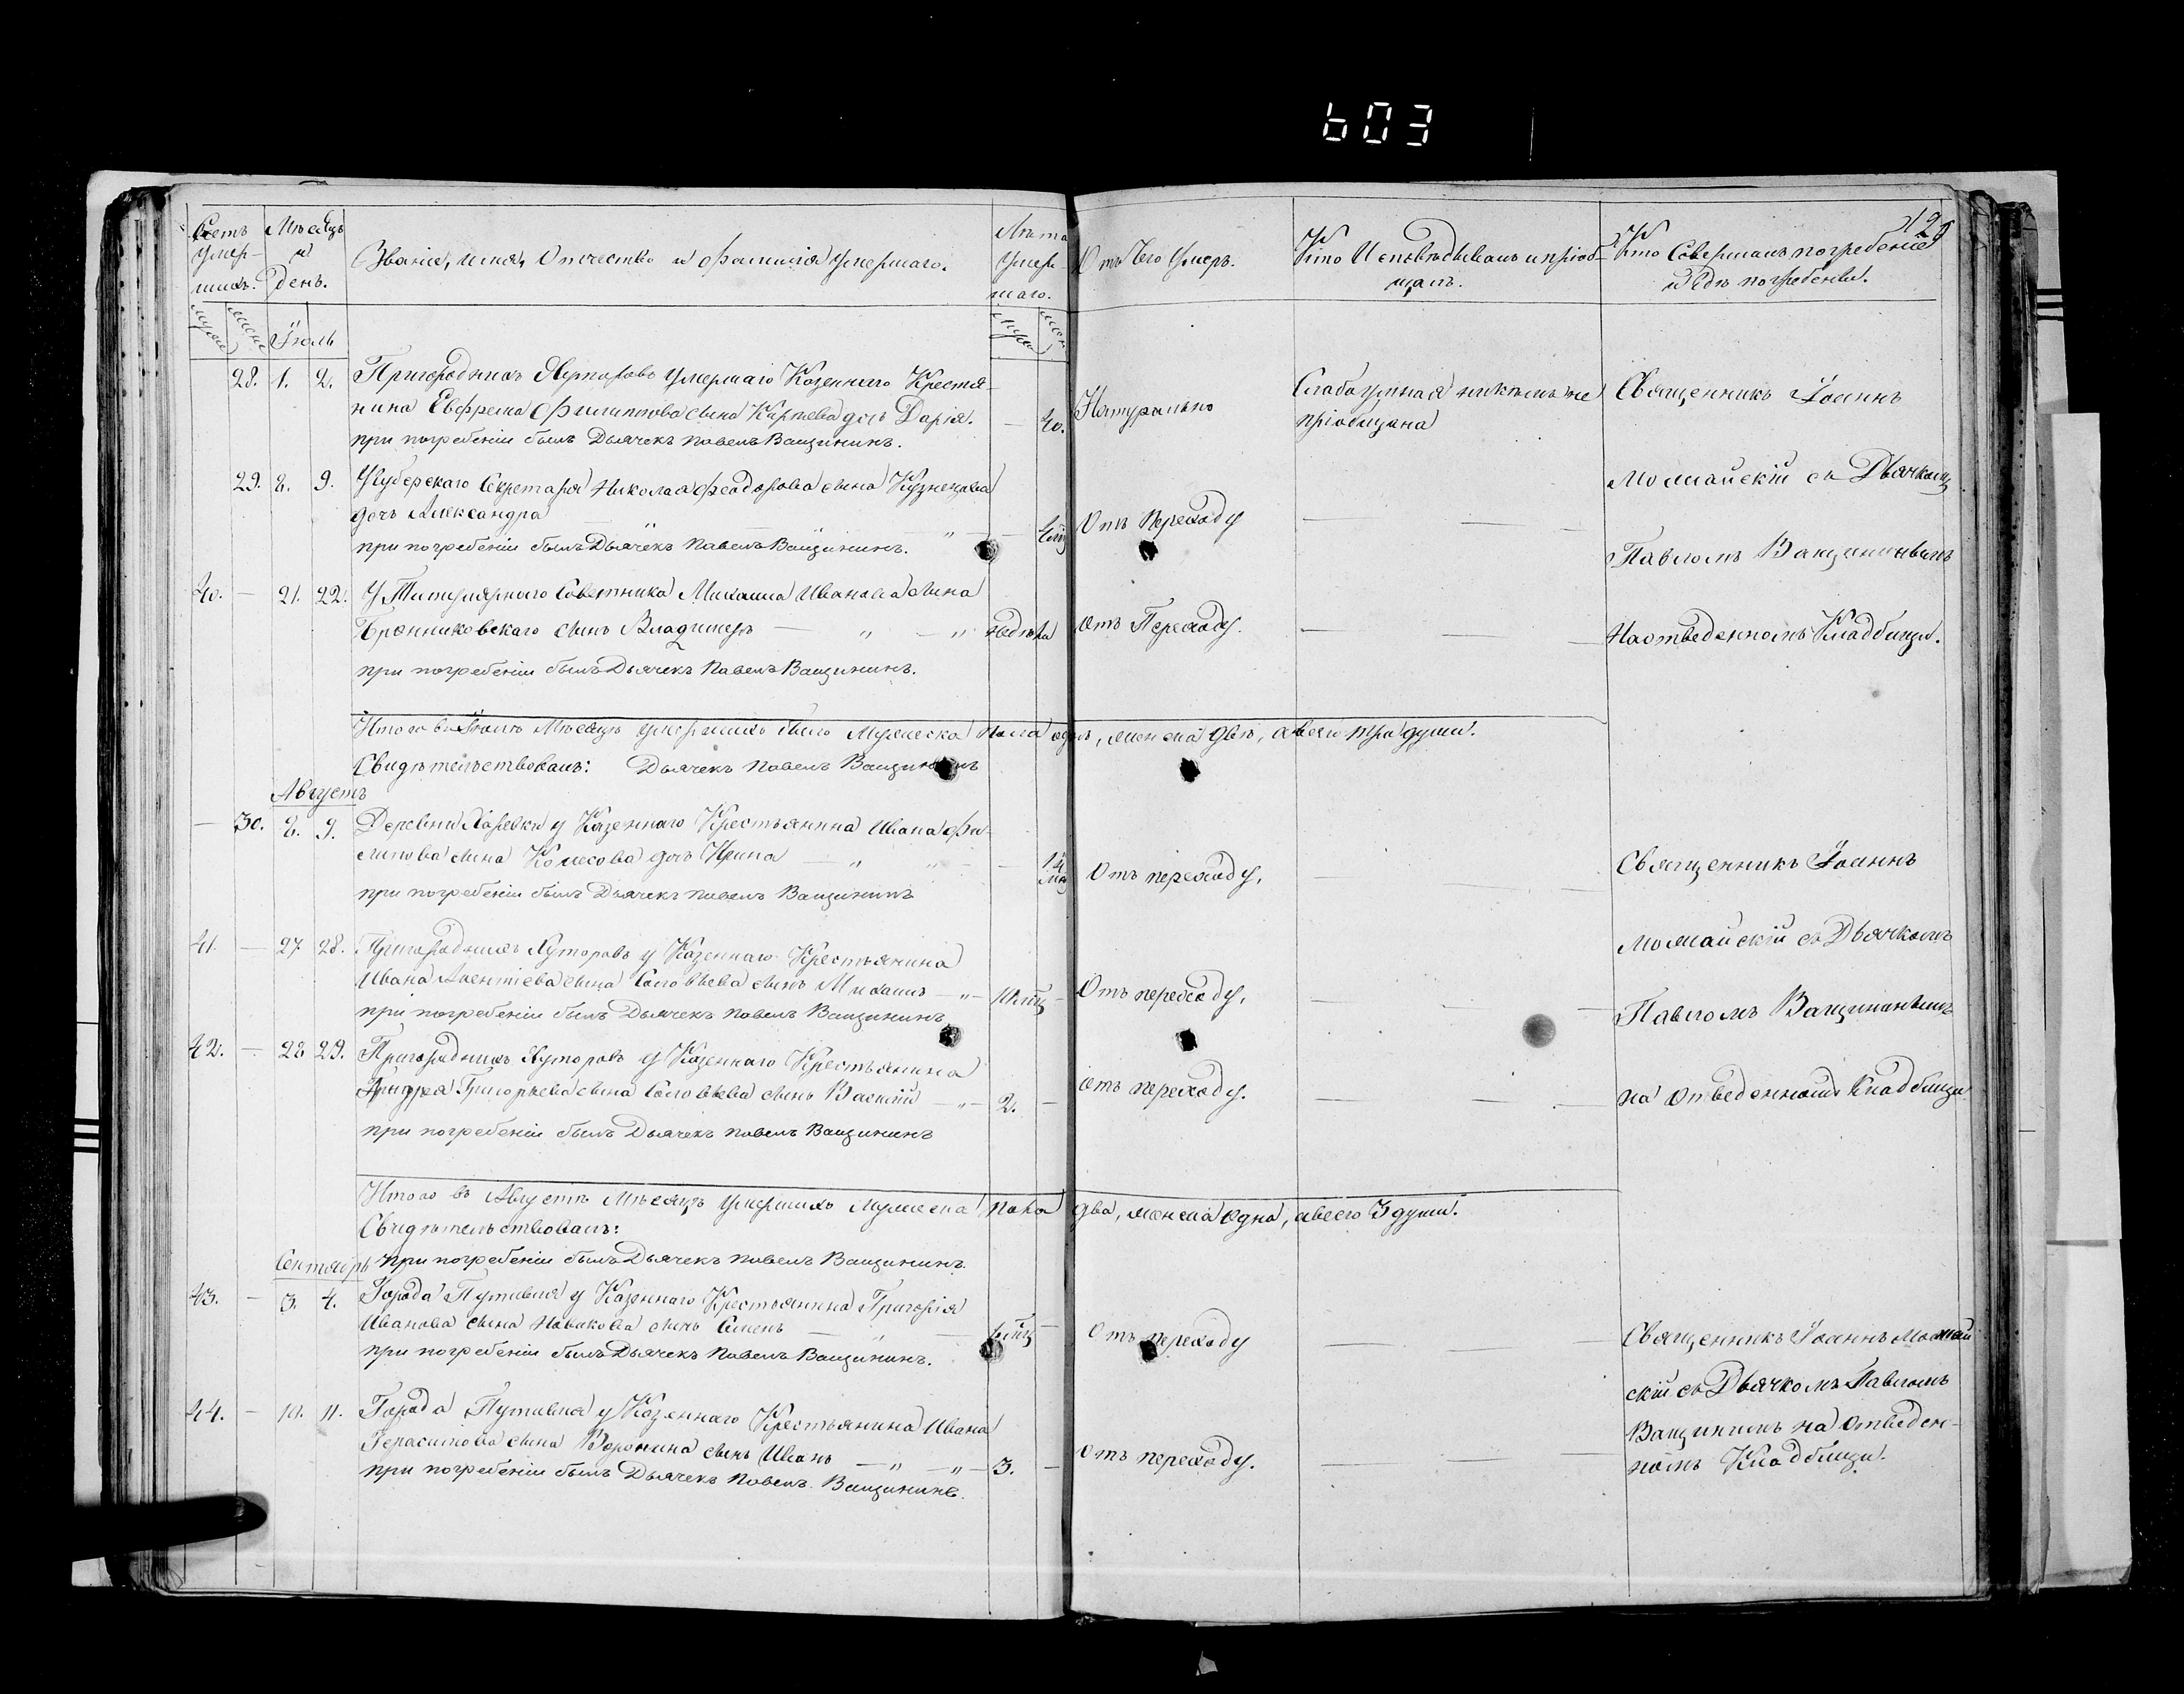 603
129
Счетъ умер-шихъ.
Мѣсяцъ и день.
Званіе, имя, отчество и фамилія умершаго.
Лѣта умер-шаго.
Отъ чего умеръ.
Кто исповѣдывалъ и пріоб-щалъ.
Кто совершалъ погребеніе и гдѣ погребены.
Іюль
28. 1. 2. Пригородныхъ Хуторовъ умершаго Казеннаго Крестья-
нина Евфрема Филиппова сына Карпева дочь Дарія. — 40.
при погребеніи былъ Дьячекъ Павелъ Ващининъ.
Натурально
Слабоумная никѣмъ не
пріобщена
Священникъ Іоаннъ
29. 8. 9. У Губерскаго Секретаря Николая Феодорова сына Кузнецова
дочь Александра
при погребеніи былъ Дьячекъ Павелъ Ващининъ.
Отъ переходу
Можайскій съ Дьячкомъ
Павломъ Ващининымъ
40. — 21. 22. У Титулярнаго Совѣтника Михаила Иванова сына
сынъ Владимеръ — „ — „ недѣля
при погребеніи былъ Дьячекъ Павелъ Ващининъ.
Отъ Переходу.
На отведенномъ Кладбищи.
Итого въ Іюлѣ Мѣсяцѣ умершихъ было Мужеска пола одинъ, женска двѣ, а всего три души.
Свидѣтельствовалъ: Дьячекъ Павелъ Ващининъ
Августъ
— 30. 8. 9. Деревни у Казеннаго Крестьянина Ивана Фи-
липова сына Колесова дочь Ирина — „ „ —
при погребеніи былъ Дьячекъ Павелъ Ващининъ
Отъ переходу,
Священникъ Іоаннъ
41. — 27. 28. Пригородныхъ Хуторовъ у Казеннаго Крестьянина
Ивана сына Соловьева сынъ Михаилъ — „ —
при погребеніи былъ Дьячекъ Павелъ Ващининъ
Отъ переходу,
Можайскій съ Дьячкомъ
Павломъ Ващининымъ
42. — 28. 29. Пригородныхъ Хуторовъ у Казеннаго Крестьянина
Андрея Григорьева сына Соловьева сынъ Василій — „ — 2. —
при погребеніи былъ Дьячекъ Павелъ Ващининъ
отъ переходу.
на отведенномъ Кладбищи
Итого въ Августѣ Мѣсяцѣ умершихъ мужеска пола два, женска одна, а всего 3 души.
Свидѣтельствовалъ:
при погребеніи былъ Дьячекъ Павелъ Ващининъ.
Сентябрь
43. — 3. 4. Города Путивля у Казеннаго Крестьянина Григорія
Иванова сына Новикова сынъ Семенъ — „ —
при погребеніи былъ Дьячекъ Павелъ Ващининъ.
Отъ переходу
Священникъ Іоаннъ Можай
скій съ Дьячкомъ Павломъ
44. — 10. 11. Города Путивля у Казеннаго Крестьянина Ивана
Герасимова сына Воронина сынъ Иванъ — „ — „ — 3. —
при погребеніи былъ Дьячекъ Павелъ Ващининъ.
Отъ переходу.
Ващининъ на отведен-
номъ Кладбищи.